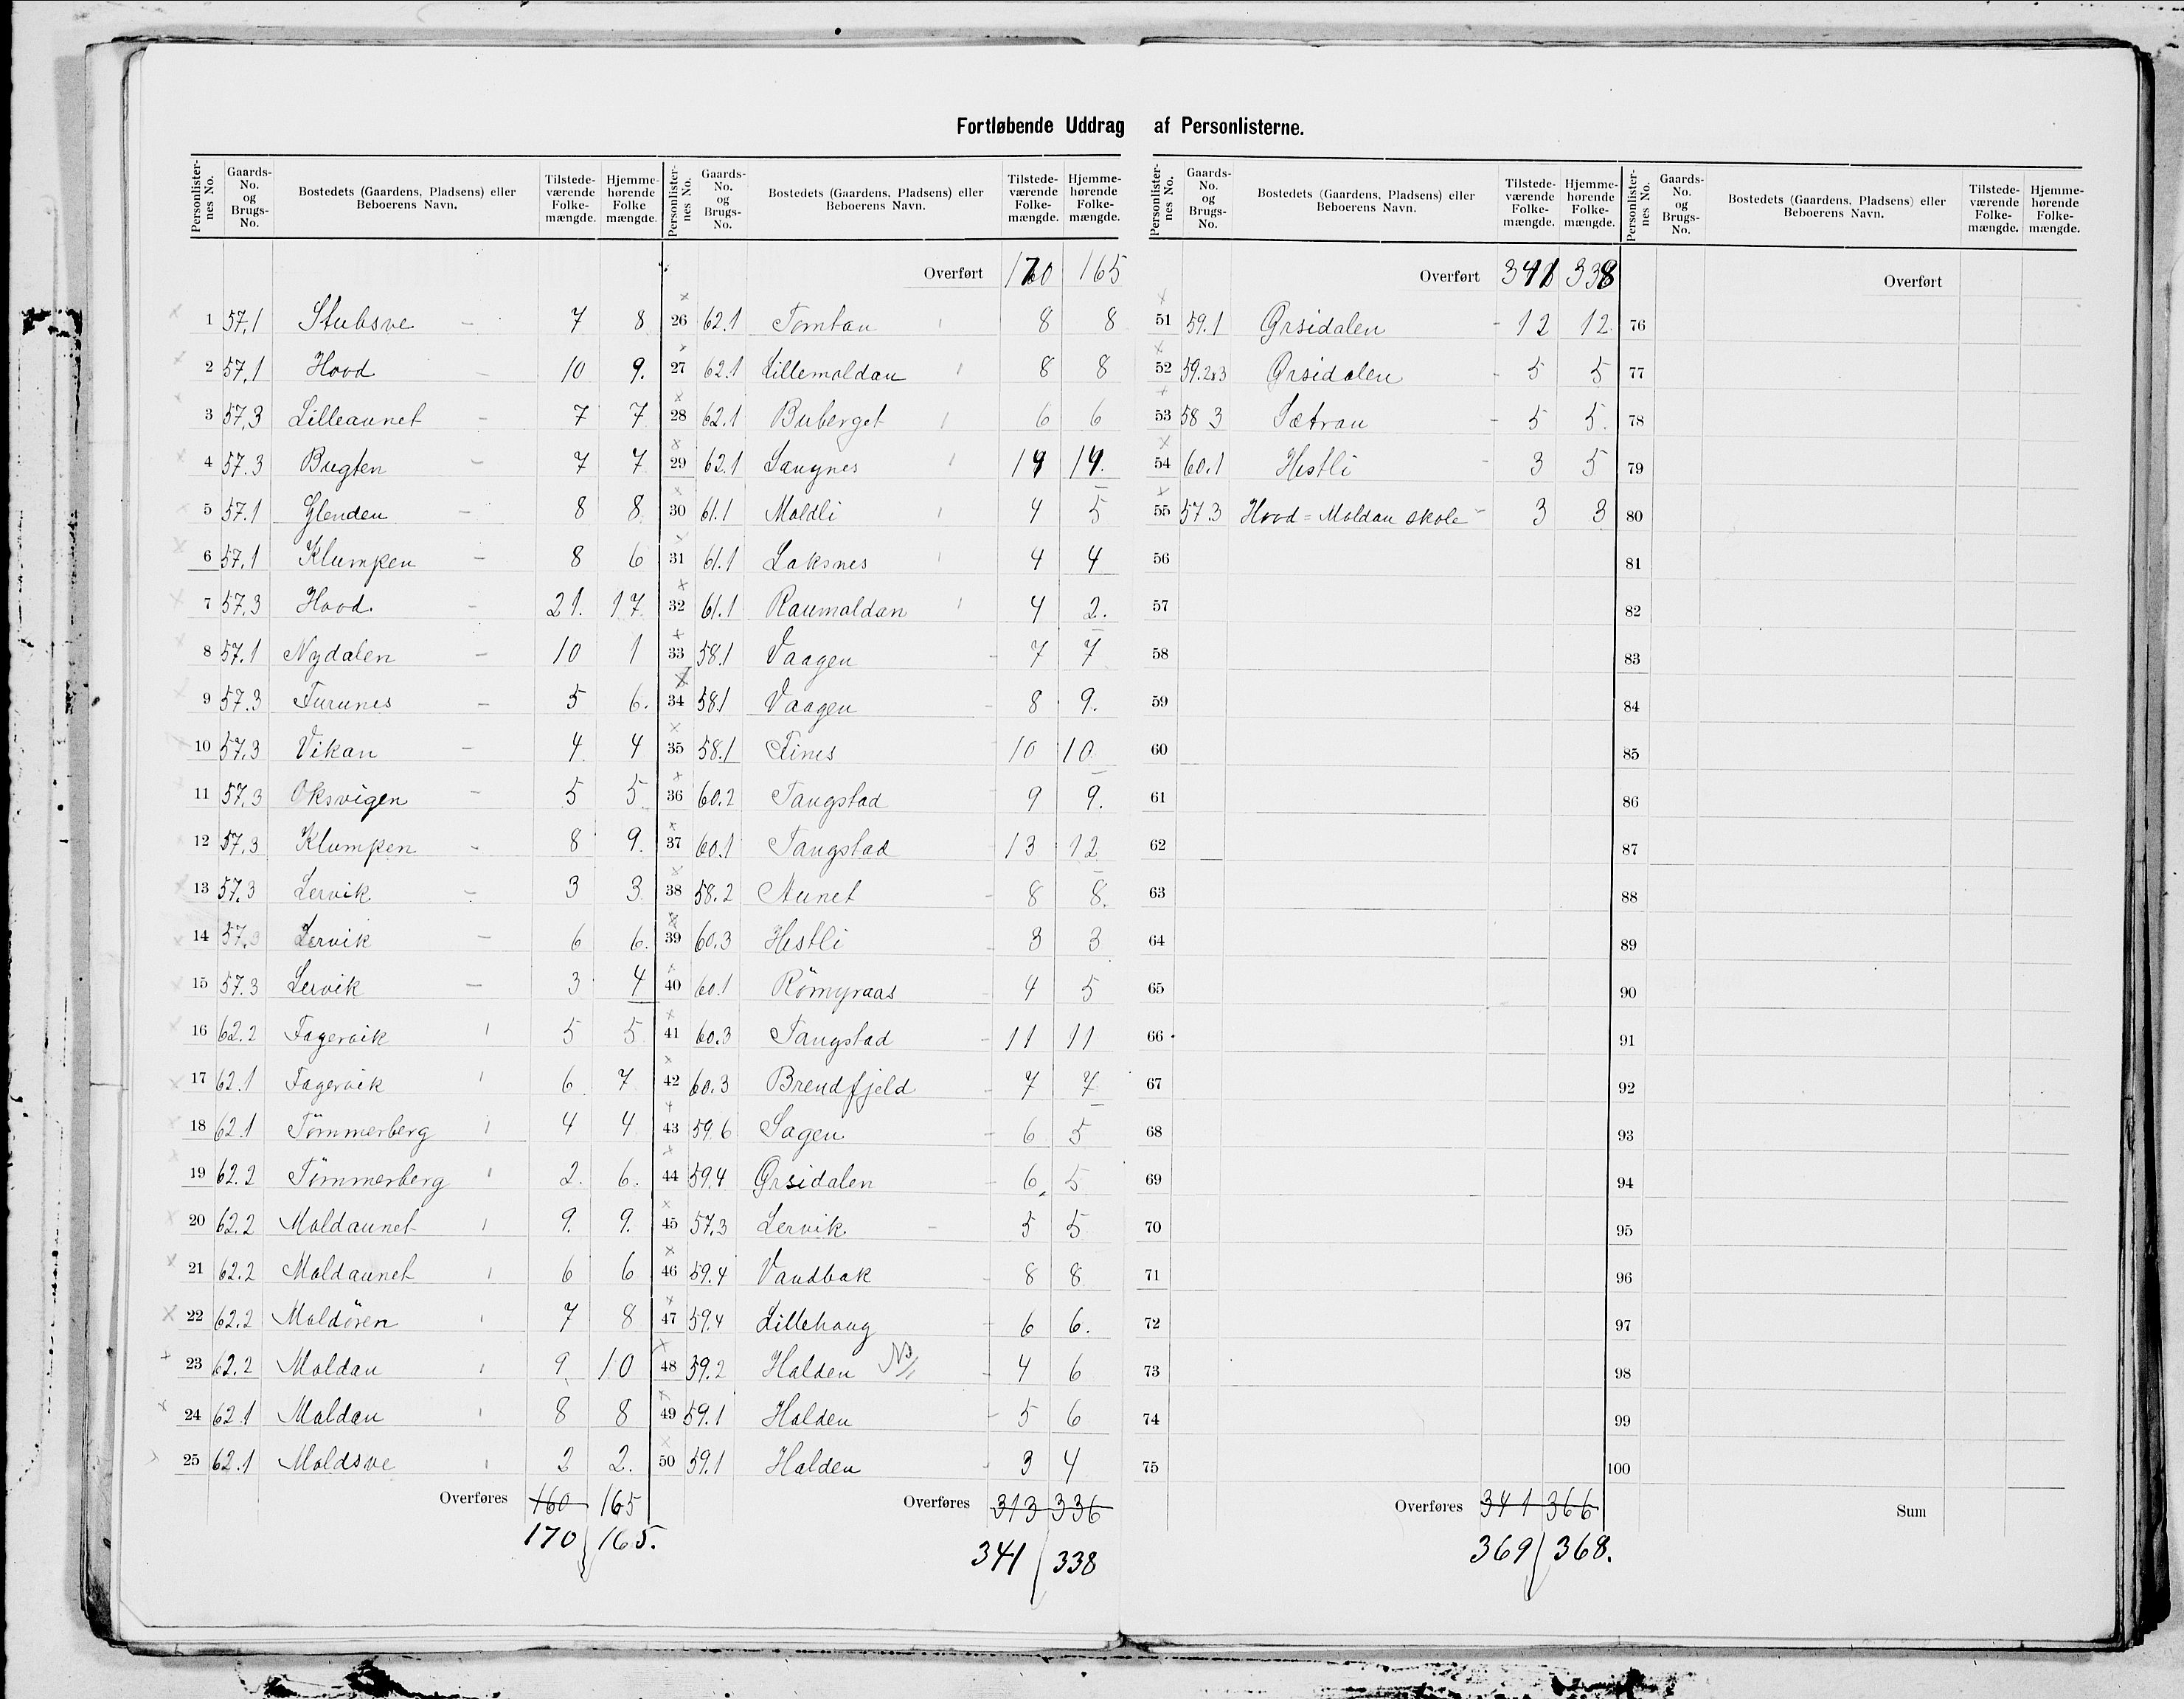 Fortløbende Uddrag af Personlisterne.
Personlister-nes No. Gaards-No. og Brugs-No. Bostedets (Gaardens, Pladsens) eller Beboerens Navn. Tilstede-værende Folke-mængde. Hjemme-hørende Folke mængde.
1 57,1 Stubsve - 7 8
2 57,1 Hood - 10 9.
3 57,3 Lilleaunet - 7 7
4 57.3 Bugten - 7 7
5 57.1 Glenden - 8 8
6 57,1 Klumpen - 8 6
7 57,3 Hood. - 21. 17
8 57.1 Nydalen - 10 1
9 57.3 Furunes - 5 6.
10 57.3 Vikan - 4 4
11 57,3 Oksvigen - 5 5
12 57,3 Klumpen - 8 9.
13 57.3 Lervik - 3 3
14 57.3 Lervik - 6 6.
15 57.3 Lervik - 3 4
16 62.2 Fagervik 5 5
17 62.1 Fagervik 6 7
18 62.1 Tömmerberg 4 4
19 62.2 Tömmerberg 2. 6.
20 62.2 Moldaunet 9. 9.
21 62.2 Moldaunet 6 6
22 62.2 Moldören 7 8
23 62.2 Moldan 9 10
24 62.1 Moldan 8 8
25 62.1 Moldsve 2 2.
Overføres 160 165
170 165.
Personlister-nes No. Gaards-No. og Brugs-No. Bostedets (Gaardens, Pladsens) eller Beboerens Navn. Tilstede-værende Folke-mængde. Hjemme-hørende Folke-mængde.
Overført 170 165
26 62.1 Tomtan 8 8
27 62.1 Lillemoldan 8 8
28 62.1 Buberget 6 6
29 62.1 Langnes 19 19.
30 61.1 Moldli 4 5
31 61.1 Laksnes 4 4
32 61.1 Raumoldan 4 2.
33 58.1 Vaagen - 7 7
34 58.1 Vaagen - 8 9.
35 58.1 Fines 10 10
36 60.2 Tangstad 9 9.
37 60.1 Tangstad 13 12
38 58.2 Aunet - 8 8.
39 60.3 Hestli - 3 3
40 60.1 Römyraas 4 5
41 60.3 Tangstad - 11 11
42 60.3 Brendfjeld 7 7
43 59.6 Sagen - 6 5
44 59.4 Ørsidalen - 6 5
45 57.3 Lervik - 5 5
46 59.4 Vandbak - 8 8
47 59.4 Lillehaug - 6 6.
48 59.2 Halden - 4 6
49 59.1 Halden - 5 6
50 59.1 Halden - 3 4
Overføres 313 336
341 338
Personlister-nes No. Gaards-No. og Brugs-No. Bostedets (Gaardens, Pladsens) eller Beboerens Navn. Tilstede-værende Folke-mængde. Hjemme-hørende Folke-mængde.
Overført 341 338
51 59.1 Ørsidalen - 12 12
52 59.2&3 Ørsidalen - 5 5
53 58 3 Sætran - 5 5.
54 60.1 Hestli - 3 5
55 57 3 Hood = Moldan skole - 3 3
56
57
58
59
60
61
62
63
64
65
66
67
68
69
70
71
72
73
74
75
Overføres 341 366
369 368.
Personlister-nes No. Gaards-No. og Brugs-No. Bostedets (Gaardens, Pladsens) eller Beboerens Navn. Tilstede-værende Folke-mængde. Hjemme-hørende Folke-mængde.
Overført
76
77
78
79
80
81
82
83
84
85
86
87
88
89
90
91
92
93
94
95
96
97
98
99
100
Sum